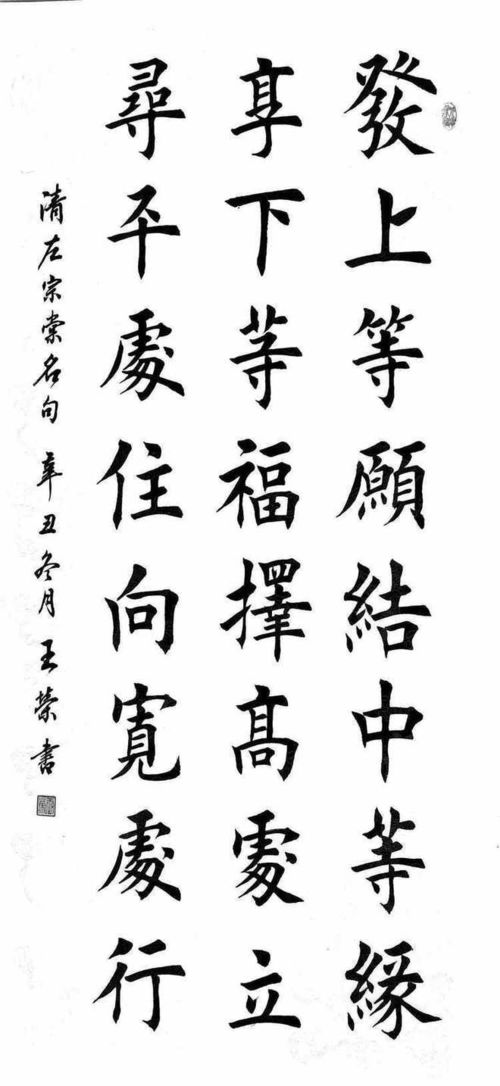 發上等願結中等緣
享下等福擇高處立
尋平處住向寬處行
清左宗棠名句 辛丑冬月 王榮書